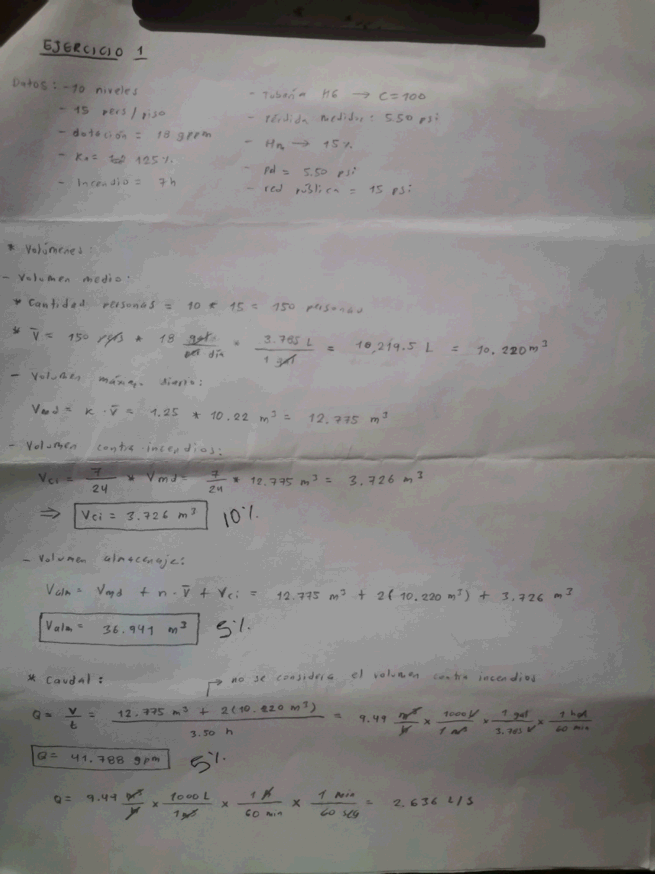 EJERCICIO 1
Datos: - 10 niveles
- 15 pers/piso
- dotación = 18 gppm
- 125%
- Incendio = 7h
- Tubería HG → C=100
- Pérdida medidor: 5.50 psi
- 15%
- Pd = 5.50 psi
- red pública = 15 psi
* Volúmenes:
- Volumen medio:
* Cantidad personas = 10 * 15 = 150 personas
* V̄ = 150 pers * 18 gal/per día * 3.785 L/1 gal = 10,219.5 L = 10.220 m³
- Volumen máximo diario:
Vmd = K · V̄ = 1.25 * 10.22 m³ = 12.775 m³
- Volumen contra incendios:
Vci = 7/24 * Vmd = 7/24 * 12.775 m³ = 3.726 m³
⇒ Vci = 3.726 m³ 10%
- Volumen almacenaje:
Valm = Vmd + n · V̄ + Vci = 12.775 m³ + 2(10.220 m³) + 3.726 m³
Valm = 36.941 m³ 5%
* Caudal: → no se considera el volumen contra incendios
Q = V/t = 12.775 m³ + 2(10.220 m³)/3.50 h = 9.49 m³/h × 1000 L/1 m³ × 1 gal/3.785 L × 1 hor/60 min
Q = 41.788 gpm 5%
Q = 9.49 m³/h × 1000 L/1 m³ × 1 h/60 min × 1 min/60 seg = 2.636 L/s